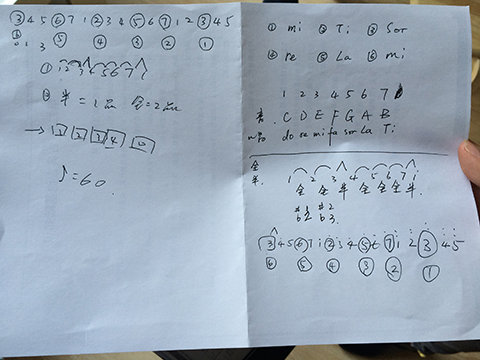 ③ 4 5 ⑥ 7 1 ② 3 4 ⑤ 6 ⑦ 1 2 ③ 4 5
⑥ ⑤ ④ ③ ② ①
0 1 3
① 1 2 3 4 5 6 7 i
② 半 = 1品 全 = 2品
→ 1 2 3 4
♪ = 60
① mi ② Ti ③ Sor
④ re ⑤ La ⑥ mi
1 2 3 4 5 6 7
C D E F G A B
do re mi fa sor La Ti
全
半
1 2 3 4 5 6 7 i
全 全 半 全 全 全 半
#1 #2
b2 b3
③ 4 5 ⑥ 7 i ② 3 4 ⑤ 6 ⑦ i 2 ③ 4 5
⑥ ⑤ ④ ③ ② ①